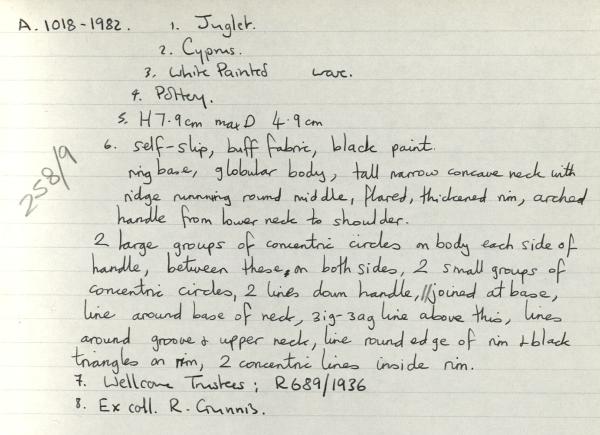 A. 1018-1982. 1. Juglet.
2. Cyprus.
3. White Painted ware.
4. Pottery.
5. H 7.9cm max D 4.9cm
258/9
6. self-slip, buff fabric, black paint.
ring base, globular body, tall narrow concave neck with
ridge running round middle, flared, thickened rim, arched
handle from lower neck to shoulder.
2 large groups of concentric circles on body each side of
handle, between these, on both sides, 2 small groups of
concentric circles, 2 lines down handle, joined at base,
line around base of neck, zig-zag line above this, lines
around groove & upper neck, line round edge of rim & black
triangles on rim, 2 concentric lines inside rim.
7. Wellcome Trustees; R689/1936
8. Ex coll. R. Gunnis.